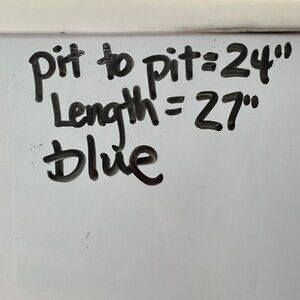 pit to pit = 24"
Length = 27"
blue